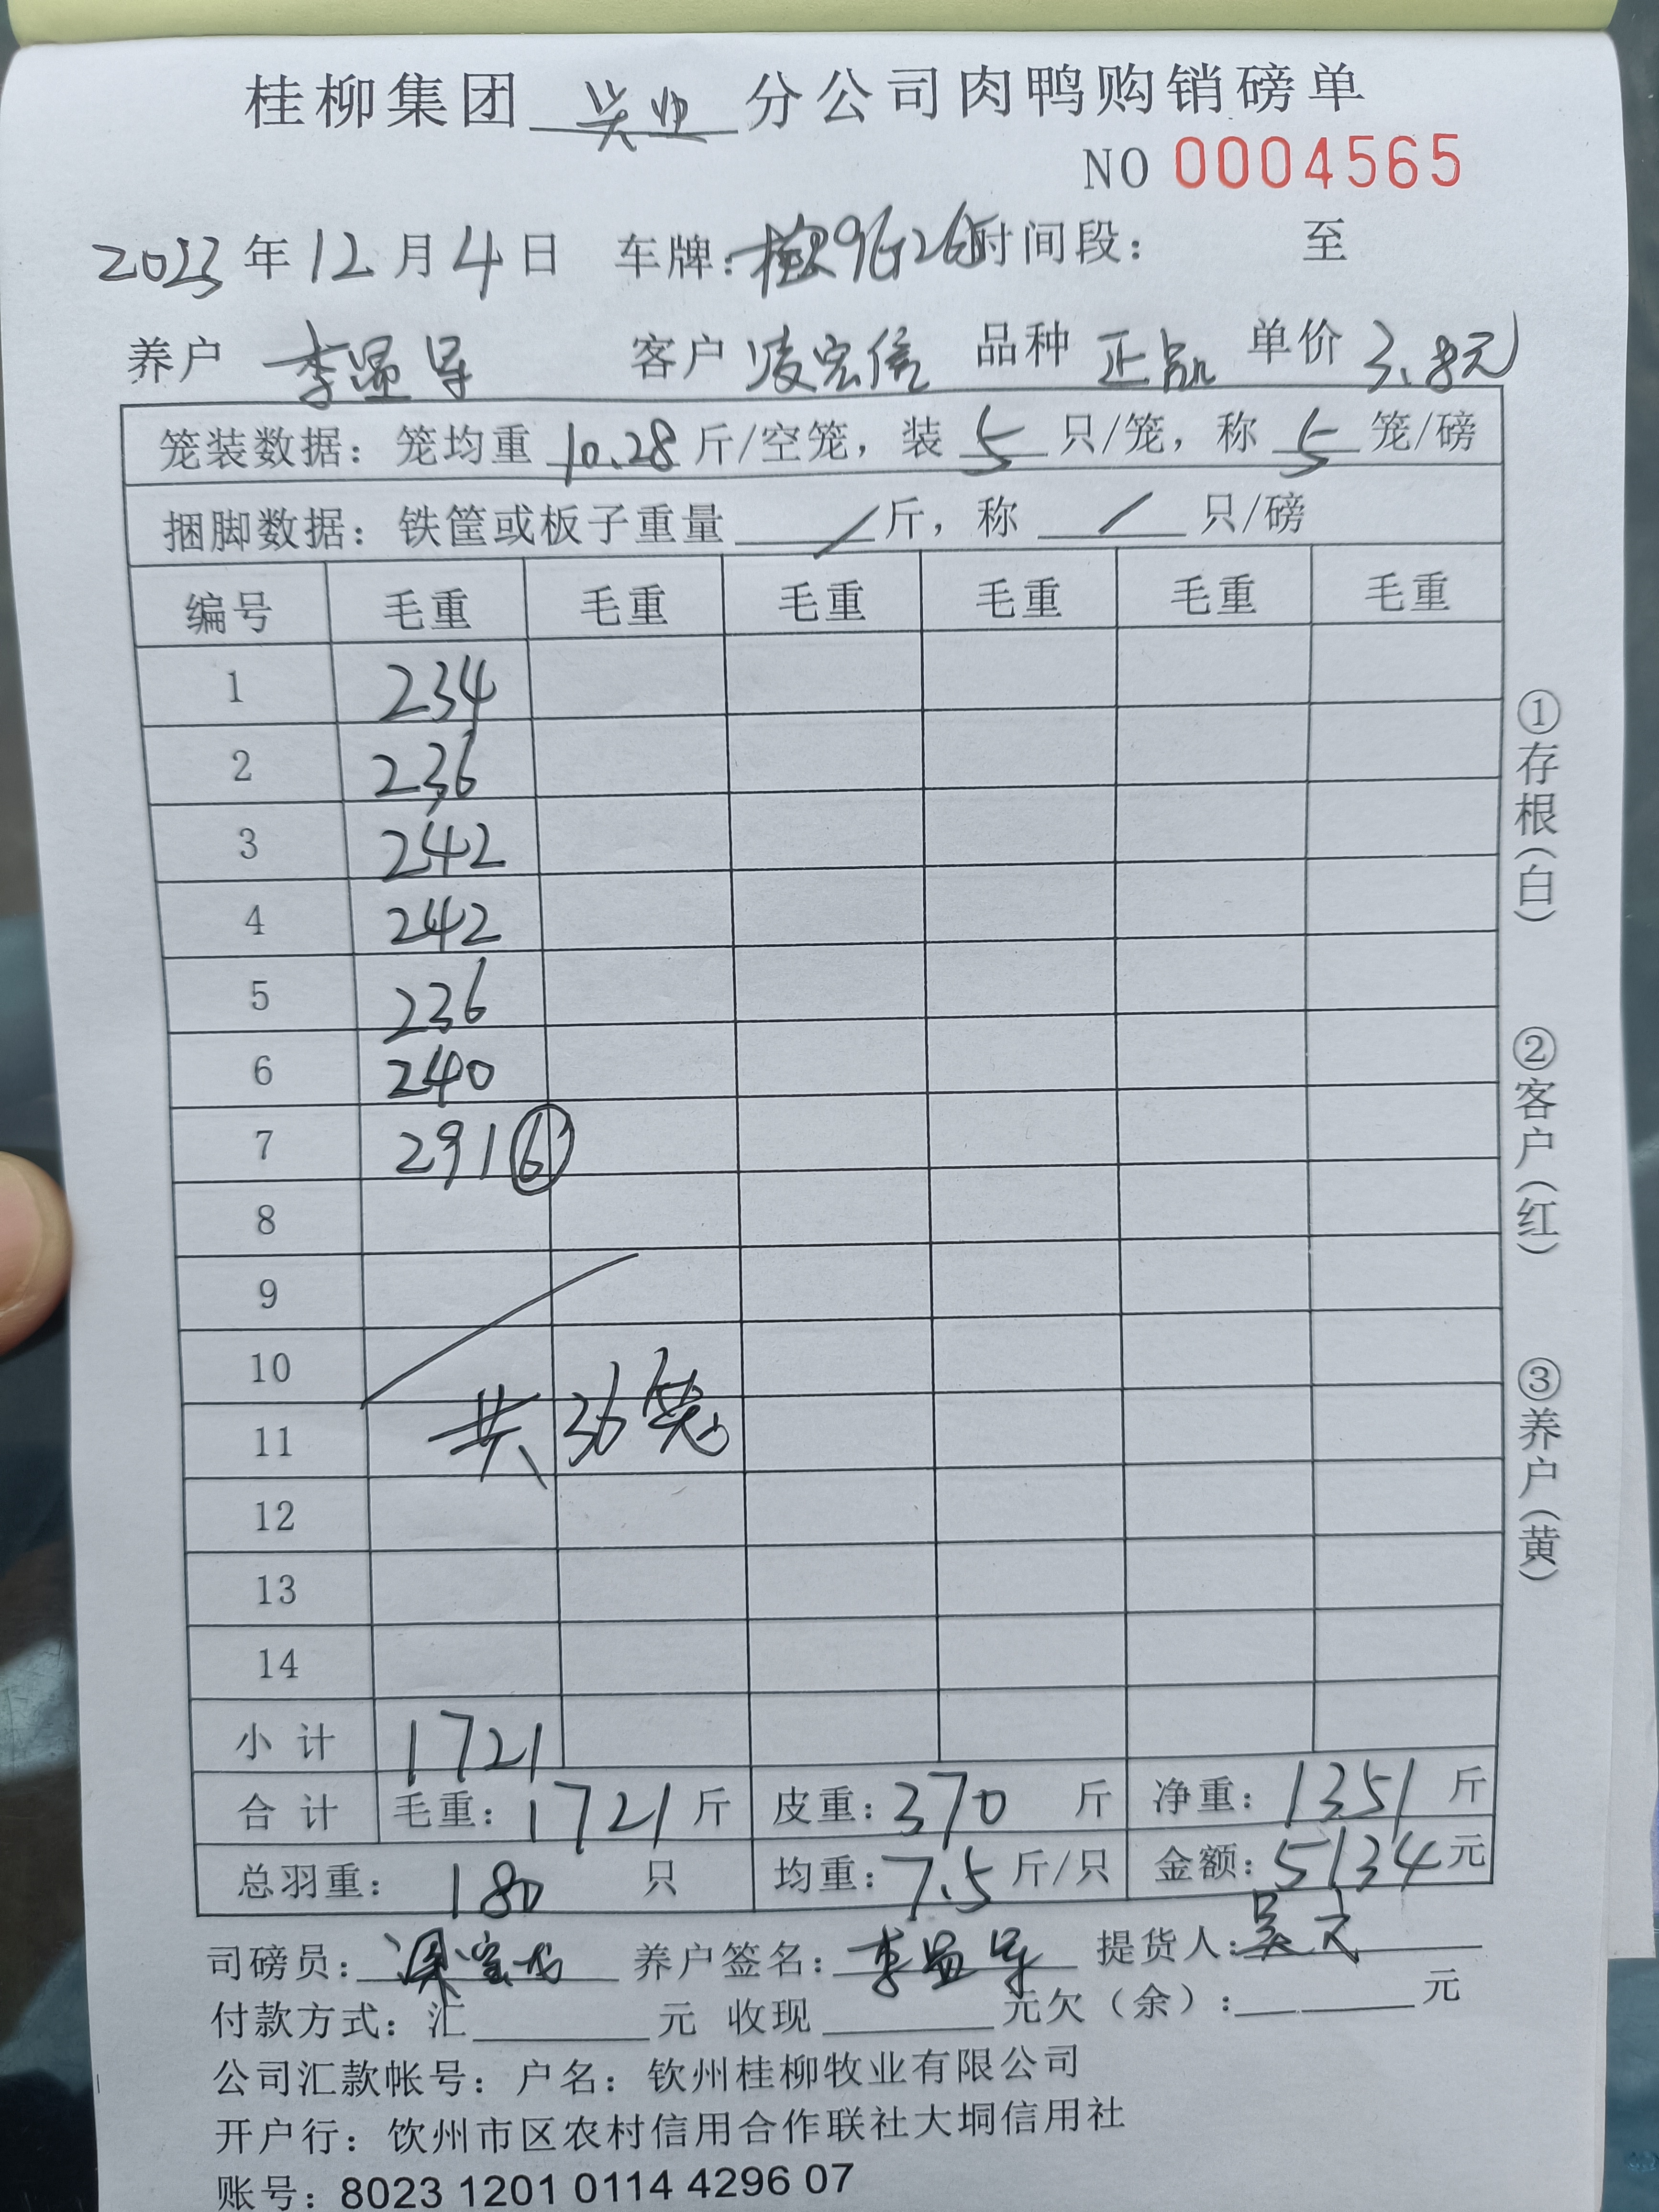 桂柳集团 兴业 分公司肉鸭购销磅单
NO 0004565
2023年12月4日 车牌: 时间段: 至
养户 李显军 客户 凌宏信 品种 正品 单价 3.8元
笼装数据: 笼均重 10.28 斤/空笼, 装 5 只/笼, 称 5 笼/磅
捆脚数据: 铁筐或板子重量 / 斤, 称 / 只/磅
编号 毛重 毛重 毛重 毛重 毛重 毛重
1 234
2 236
3 242
4 242
5 236
6 240
7 291 ⑥
8
9
10
11 共36笼
12
13
14
小计 1721
合计 毛重: 1721 斤 皮重: 370 斤 净重: 1351 斤
总羽重: 180 只 均重: 7.5 斤/只 金额: 5134 元
司磅员: 养户签名: 李显军 提货人: 吴
付款方式: 汇 元 收现 元欠(余): 元
公司汇款帐号: 户名: 钦州桂柳牧业有限公司
开户行: 钦州市区农村信用合作联社大垌信用社
账号: 8023 1201 0114 4296 07
①存根(白)
②客户(红)
③养户(黄)